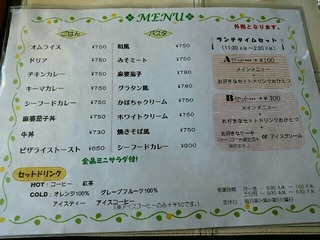 MENU
ごはん
オムライス ¥750
ドリア ¥750
チキンカレー ¥750
キーマカレー ¥750
シーフードカレー ¥750
麻婆茄子丼 ¥750
牛丼 ¥730
ピザライストースト ¥650
パスタ
和風 ¥750
みそミート ¥750
麻婆茄子 ¥780
グラタン風 ¥780
かぼちゃクリーム ¥750
ホワイトクリーム ¥750
焼きそば風 ¥750
シーフードカレー ¥900
全品ミニサラダ付!
セットドリンク
HOT:コーヒー 紅茶
COLD:オレンジ100% グレープフルーツ100%
アイスティー アイスコーヒー
外税となります。
ランチタイムセット
(11:30 A.M~2:30 P.M)
Aセット +¥100
メインメニュー
+
お好きなセットドリンクおひとつ
Bセット +¥300
メインメニュー
+
お好きなセットドリンクおひとつ
+
お好きなケーキ
or アイスクリーム
営業時間
定休日